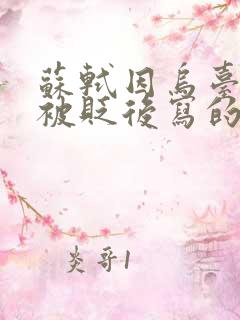 蘇軾因烏臺
被貶後寫的
炎哥1